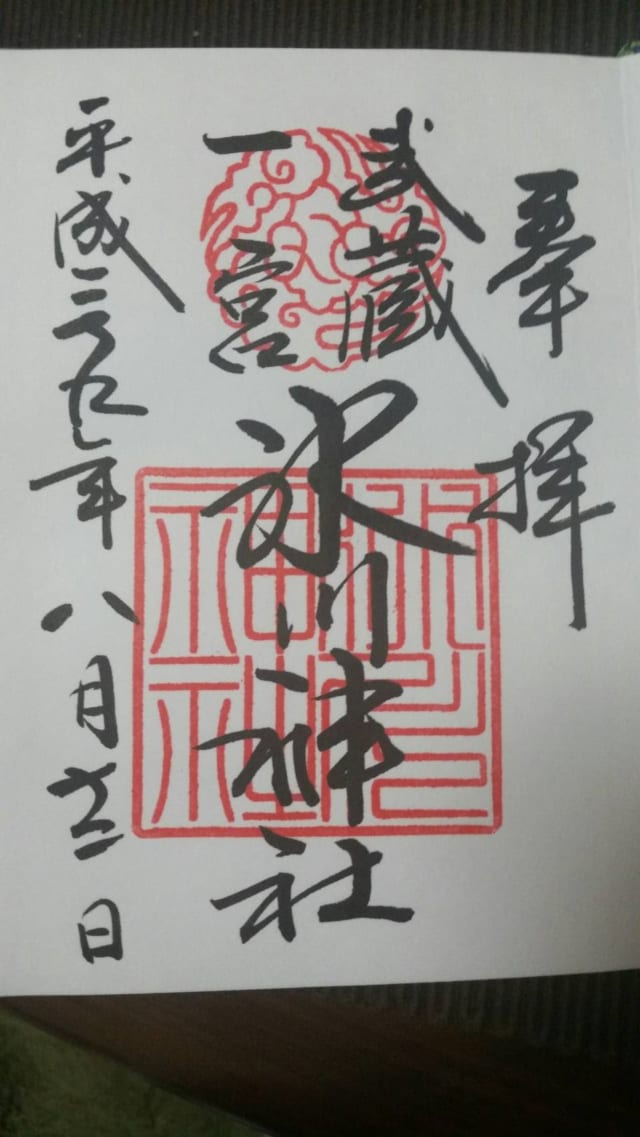 奉拝
武蔵
一宮
氷川神社
平成二十九年八月十二日
氷川
神社